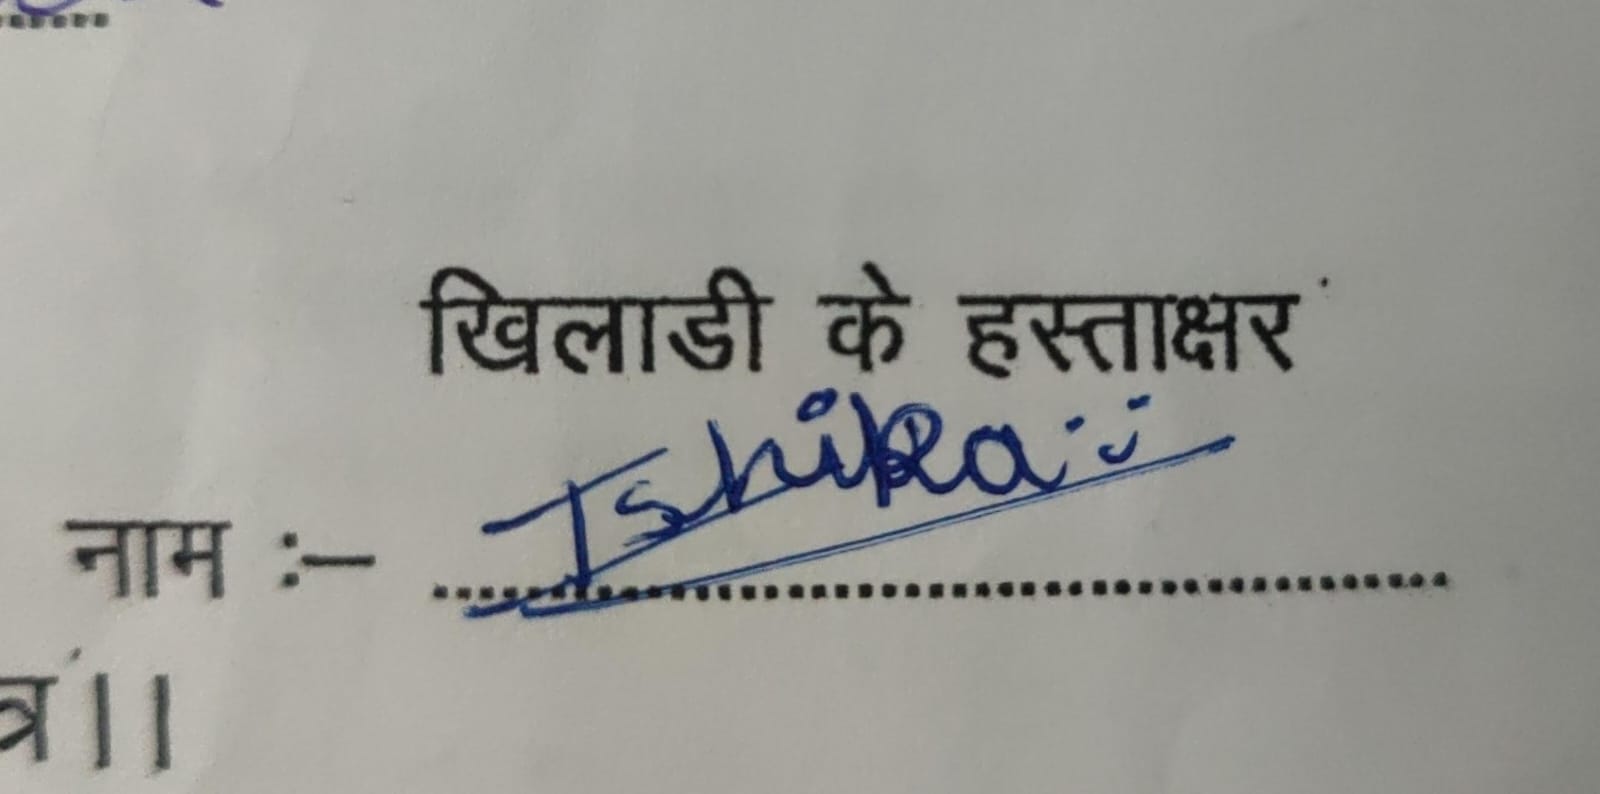 खिलाडी के हस्ताक्षर
Ishika
नाम :–
त्र।।